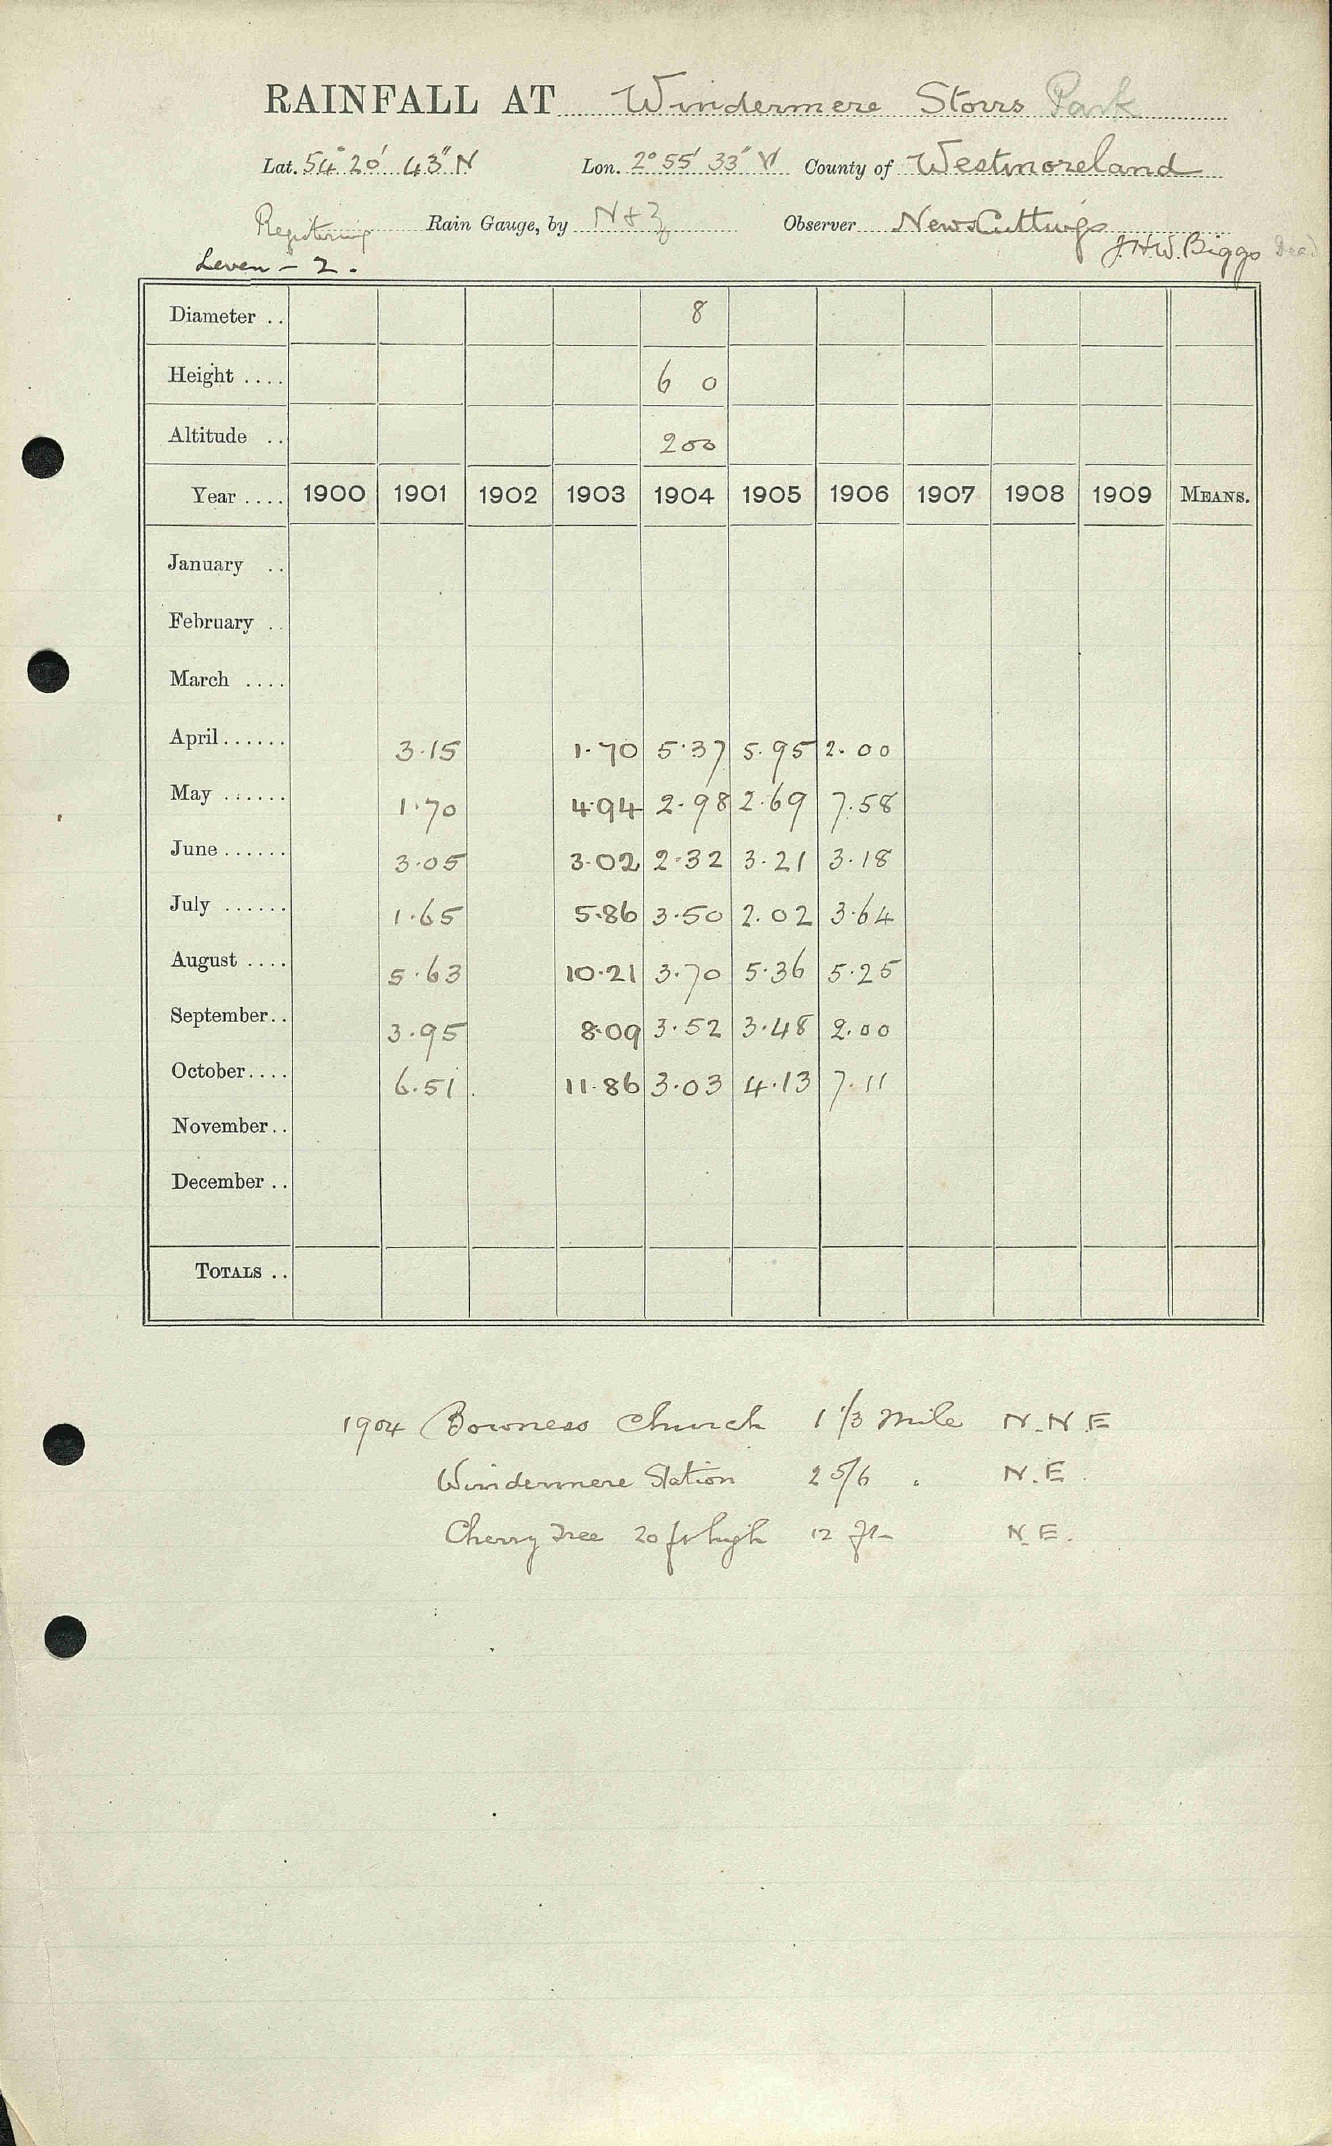 RAINFALL AT Windermere Storrs Park
Lat. 54° 20' 43" N Lon. 2° 55' 33" W County of Westmoreland
Registering Rain Gauge, by N & Z Observer News Cuttings
Leven - 2. J.H.W. Biggs Dead
Diameter .. 8
Height .... 6 0
Altitude .. 200
Year .... 1900 1901 1902 1903 1904 1905 1906 1907 1908 1909 MEANS.
January ..
February ..
March ....
April...... 3.15 1.70 5.37 5.95 2.00
May ...... 1.70 4.94 2.98 2.69 7.58
June...... 3.05 3.02 2.32 3.21 3.18
July ...... 1.65 5.86 3.50 2.02 3.64
August .... 5.63 10.21 3.70 5.36 5.25
September.. 3.95 8.09 3.52 3.48 2.00
October.... 6.51 11.86 3.03 4.13 7.11
November..
December ..
TOTALS ..
1904 Bowness Church 1 1/3 Mile N.N.E
Windermere Station 2 5/6 . N.E.
Cherry Tree 20 ft high 12 ft N.E.